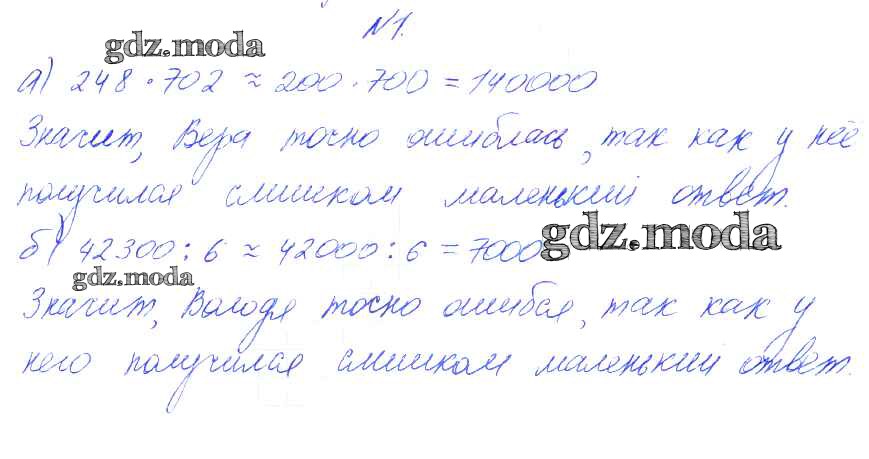 №1.
gdz.moda
а) 248 · 702 ≈ 200 · 700 = 140000
Значит, Вера точно ошиблась, так как у неё
получился слишком маленький ответ.
gdz.moda
б) 42300 : 6 ≈ 42000 : 6 = 7000
gdz.moda
Значит, Володя точно ошибся, так как у
него получился слишком маленький ответ.